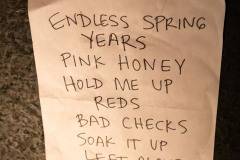 ENDLESS SPRING
YEARS
PINK HONEY
HOLD ME UP
REDS
BAD CHECKS
SOAK IT UP
LEFT